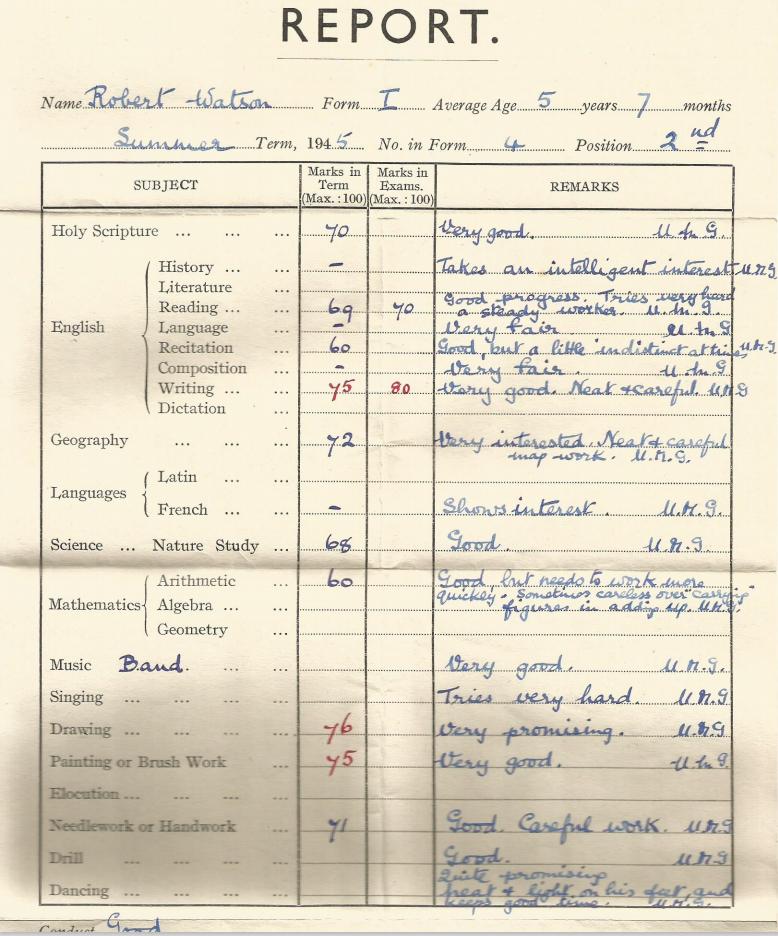 REPORT.
Name Robert Watson Form I Average Age 5 years 7 months
Summer Term, 1945 No. in Form 4 Position 2nd
SUBJECT Marks in Term (Max.:100) Marks in Exams. (Max.:100) REMARKS
Holy Scripture ... ... ... 70 Very good. U.M.G.
English
History ... ... - Takes an intelligent interest U.M.G
Literature ...
Reading ... ... 69 70 Good progress. Tries very hard
a steady worker. U.M.G.
Language ... - Very fair U.M.G
Recitation ... 60 Good, but a little indistinct at times U.M.G
Composition ... - Very fair. U.M.G
Writing ... ... 75 80 Very good. Neat & careful. U.M.G
Dictation ...
Geography ... ... ... 72 Very interested. Neat & careful
map work. U.M.G.
Languages
Latin ... ...
French ... ... - Shows interest. U.M.G.
Science ... Nature Study ... 68 Good. U.M.G.
Mathematics
Arithmetic ... 60 Good, but needs to work more
quickly. Sometimes careless over "carrying"
figures in adding up. U.M.G.
Algebra ... ...
Geometry ...
Music Band. ... ... Very good. U.M.G.
Singing ... ... ... Tries very hard. U.M.G
Drawing ... ... ... 76 Very promising. U.M.G
Painting or Brush Work ... 75 Very good. U.M.G.
Elocution ... ... ... ...
Needlework or Handwork ... 71 Good. Careful work. U.M.G
Drill ... ... ... Good. U.M.G
Dancing ... ... ... Quite promising
neat & light on his feet, and
keeps good time. U.M.G.
Conduct Good